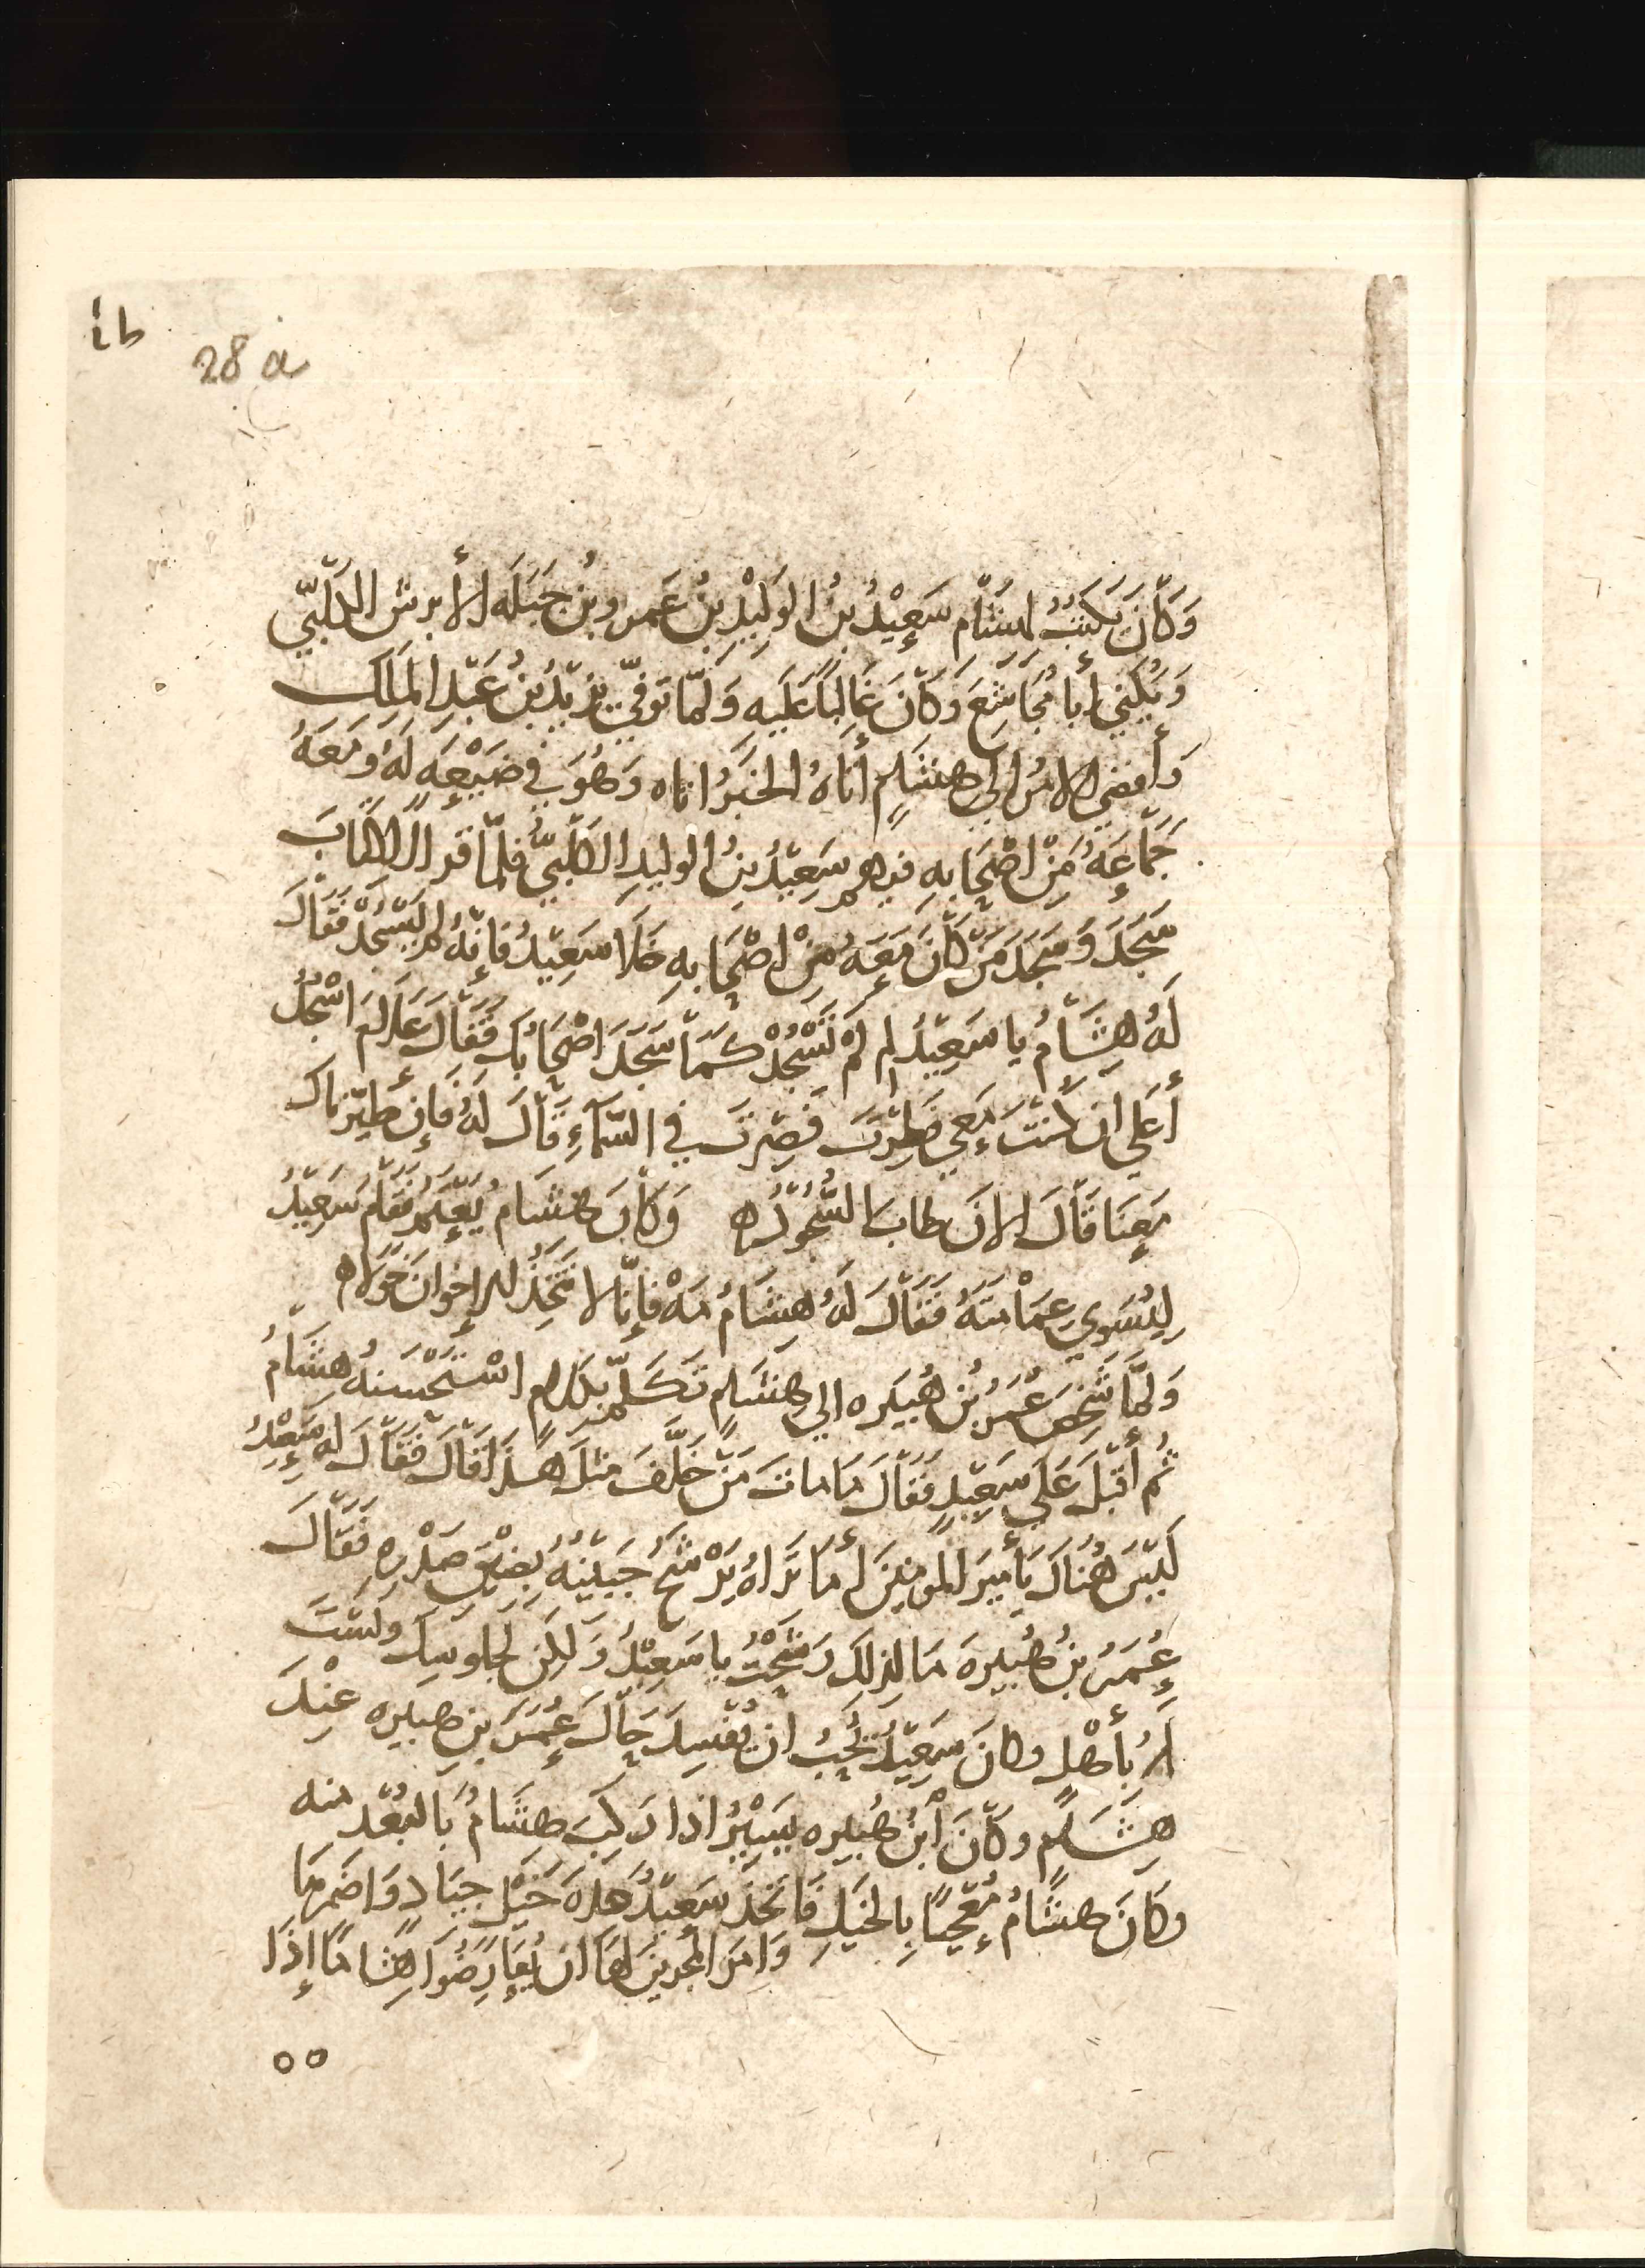 28 a
وَكَانَ يَكتُبُ لهشَام سَعِيْدُ بنُ الوَلِيْدِ بنُ عَمرِو بنُ جَبَلَه الأبرش الكَلْبيّ
وَيُكني أبا مُجَاشِعَ وَكَانَ غَالِبًا عَلَيهِ وَلَمّا توفيّ يزيْدُ بنُ عَبْدِ الملك
وَأفضي الامرُ الي هشَامٍ أتَاهُ الخبَرُ اتاه وَهُوَ في ضَيْعِهٍ لَهُ وَمَعَهُ
جَمَاعَهُ مِنْ اصْحَابهِ فيهم سَعِيْدُ بنُ الوليدِ الكلبيّ فلمّا قرا الكتابَ
سَجَدَ وَسَجَدَ مَنْ كانَ مَعَهُ مِنْ اصْحَابهِ خلا سَعِيْدُ فَإنّهُ لم يَسْجُدْ فَقَالَ
لَهُ هِشَامُ يا سَعِيْدُ لم لمْ تَسْجُدْ كمَا سَجَدَ اصْحَابُكَ فَقَالَ عَلامَ اسْجُدُ
أعَلي ان كنتَ مَعِي فطِرْتَ فصِرتَ في السَّمَآءِ قَالَ لَهُ فَإن طيّرناك
مَعِنَا قَالَ الانَ طابَ السُّجُودُ ه وَكَانَ هشَام يُعِتَمُّ فقَامَ سَعِيْدُ
لِيُسَوي عِمَامَتَهُ فَقَالَ لَهُ هِشَامُ مَهْ فإنّا لا نتّخِذُ الإخوانَ خَوَلا ه
وَلمّا شَخِصَ عُمَرُ بنُ هُبَيْره الي هشَامٍ تَكَلّمَ بكلام اسْتَحْسَنهُ هِشَامُ
ثُم أقبَلَ عَلي سَعِيْدٍ فقَالَ مَا ماتَ مَنْ خلّفَ مثلَ هذَا قالَ فقَالَ لهُ سَعِيْدُ
لَيْسَ هُنَاكَ يَأميرَ المومنينَ أمَا تَرَاهُ يَرْشَحُ جَبينُهُ بضيْقِ صَدْرِهِ فَقَالَ
عُمَرُ بنُ هُبَيرهَ مَا لِذلِكَ رَشَحْتُ يا سَعِيْدُ وَلكِن لجلوسِكَ ولسْتَ
لهُ بأهْلٍ وكانَ سَعِيْدُ يُحِبُ ان يُفْسِدَ حَالَ عُمَرَ بنِ هبيره عنْدَ
هِشَامٍ وكَانَ أبْنُ هُبيره يَسِيْرُ اذا ركِبَ هِشَامُ بَالبُعْد منه
وكَانَ هشامُ مُعْجَبًا بِالخيَلِ فَاتخَذَ سَعِيْدُ عدّهَ خَيْلٍ جيَادٍ وَاضمَرهَا
وَامَرَ المجرينَ لهَا ان يُعَارِضُوَا هِشامًا إذَا